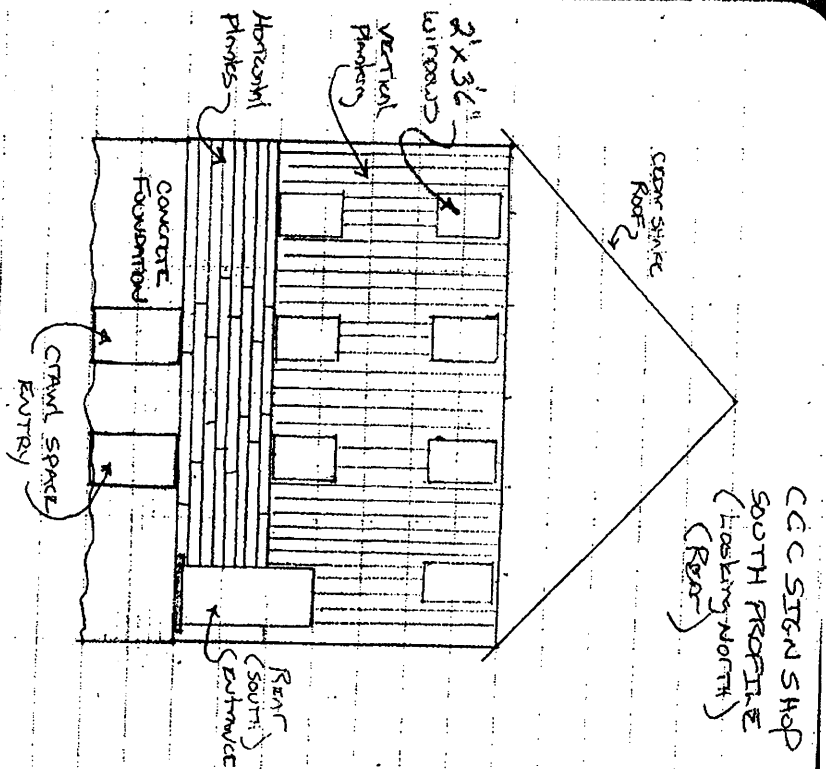 CCC SIGN SHOP
SOUTH PROFILE
(Looking North)
(REAR)
CEDAR SHAKE
ROOF
2' x 3'6"
WINDOWS
VERTICAL
Planking
Horizontal
planks
CONCRETE
FOUNDATION
CRAWL SPACE
ENTRY
REAR
(SOUTH)
ENTRANCE